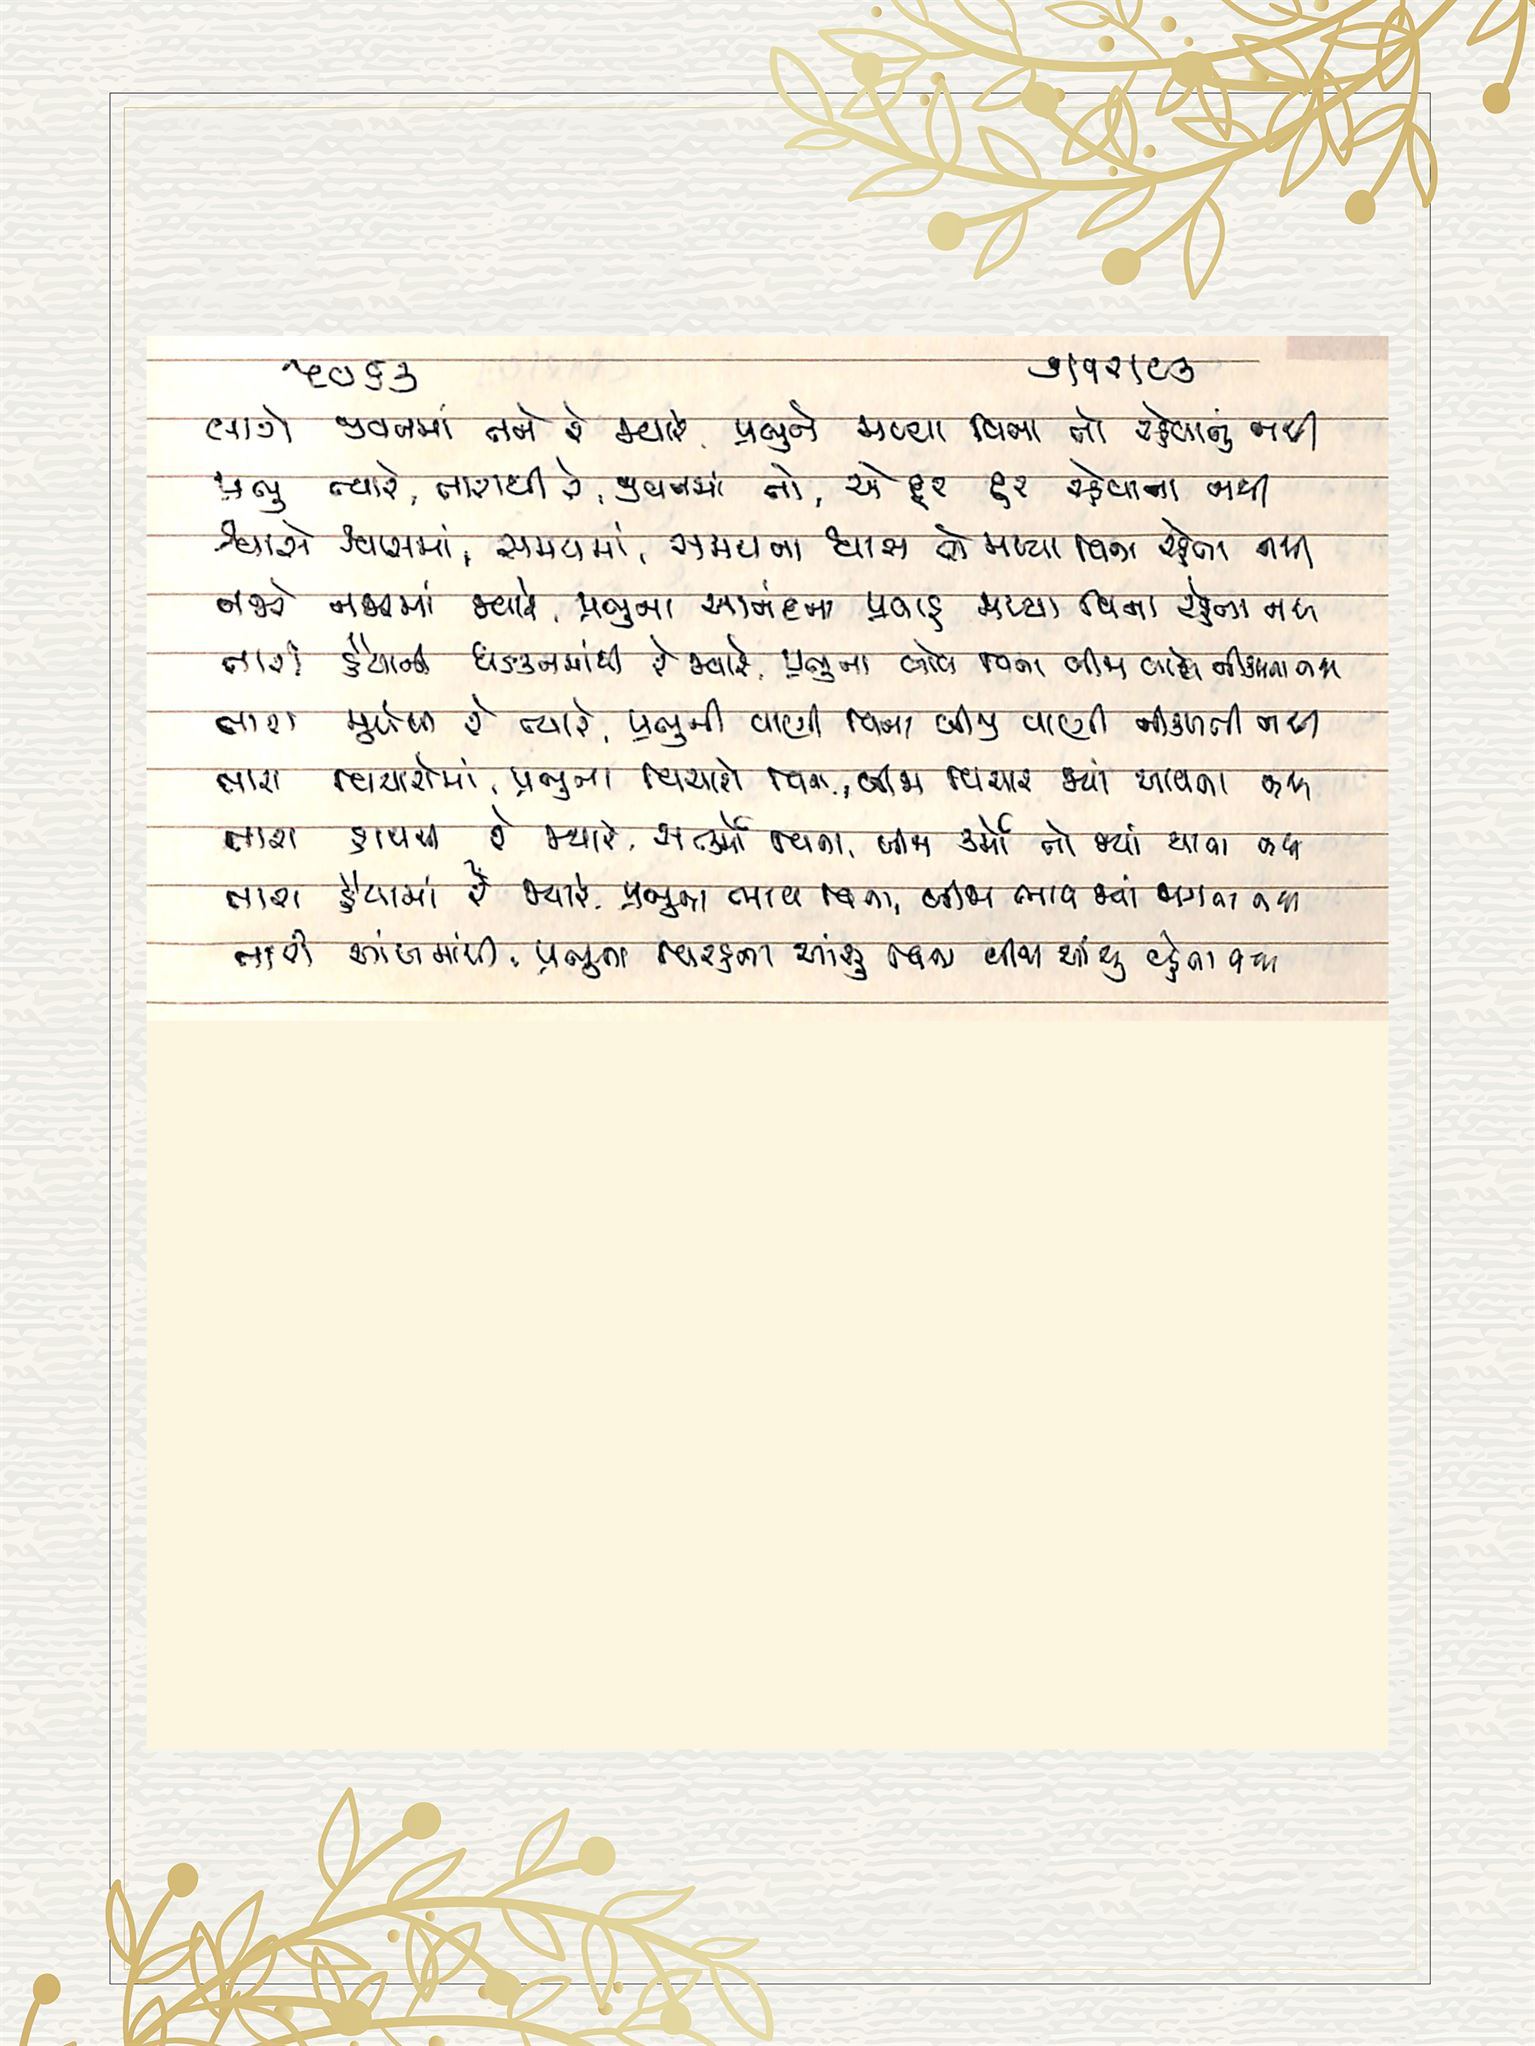 ૫૦૬૩ ૭।૧૨।૯૩
લાગે જીવનમાં તને રે જ્યારે, પ્રભુને મળ્યા વિના તો રહેવાનું નથી
પ્રભુ ત્યારે, તારાથી રે, જીવનમાં તો, એ દૂર દૂર રહેવાના નથી
શ્વાસે શ્વાસમાં, સમયમાં, સમયના શ્વાસ જો મળ્યા વિના રહેતા નથી
નજરે નજરમાં જ્યારે, પ્રભુના આનંદના પ્રવાહ મળ્યા વિના રહેતા નથી
તારી હૈયાની ધડકનમાંથી રે જ્યારે, પ્રભુના બોલ વિના બીજા બોલ નીકળતા નથી
તારા મુખેથી રે ત્યારે, પ્રભુની વાણી વિના બીજી વાણી નીકળતી નથી
તારા વિચારોમાં, પ્રભુના વિચારો વિના, બીજા વિચાર જ્યાં આવતા નથી
તારા હાથથી રે જ્યારે, સત્કર્મો વિના, બીજા કર્મો તો જ્યાં થાતા નથી
તારા હૈયામાં રે જ્યારે, પ્રભુના ભાવ વિના, બીજા ભાવ જ્યાં જાગતા નથી
તારી આંખમાંથી, પ્રભુના વિરહના આંસુ વિના બીજા આંસુ વહેતા નથી